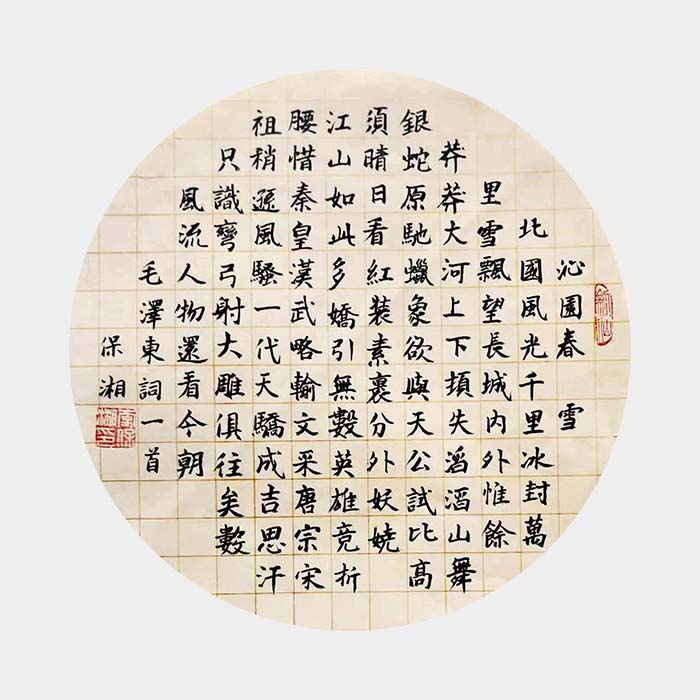 沁園春 雪
北國風光千里冰封萬
里雪飄望長城内外惟餘
莽莽大河上下頓失滔滔山舞
銀蛇原馳蠟象欲與天公試比高
須晴日看紅裝素裹分外妖嬈
江山如此多嬌引無數英雄竞折
腰惜秦皇漢武略輸文采唐宗宋
祖稍遜風騷一代天驕成吉思汗
只識彎弓射大雕俱往矣數
風流人物還看今朝
毛澤東詞一首
保湘